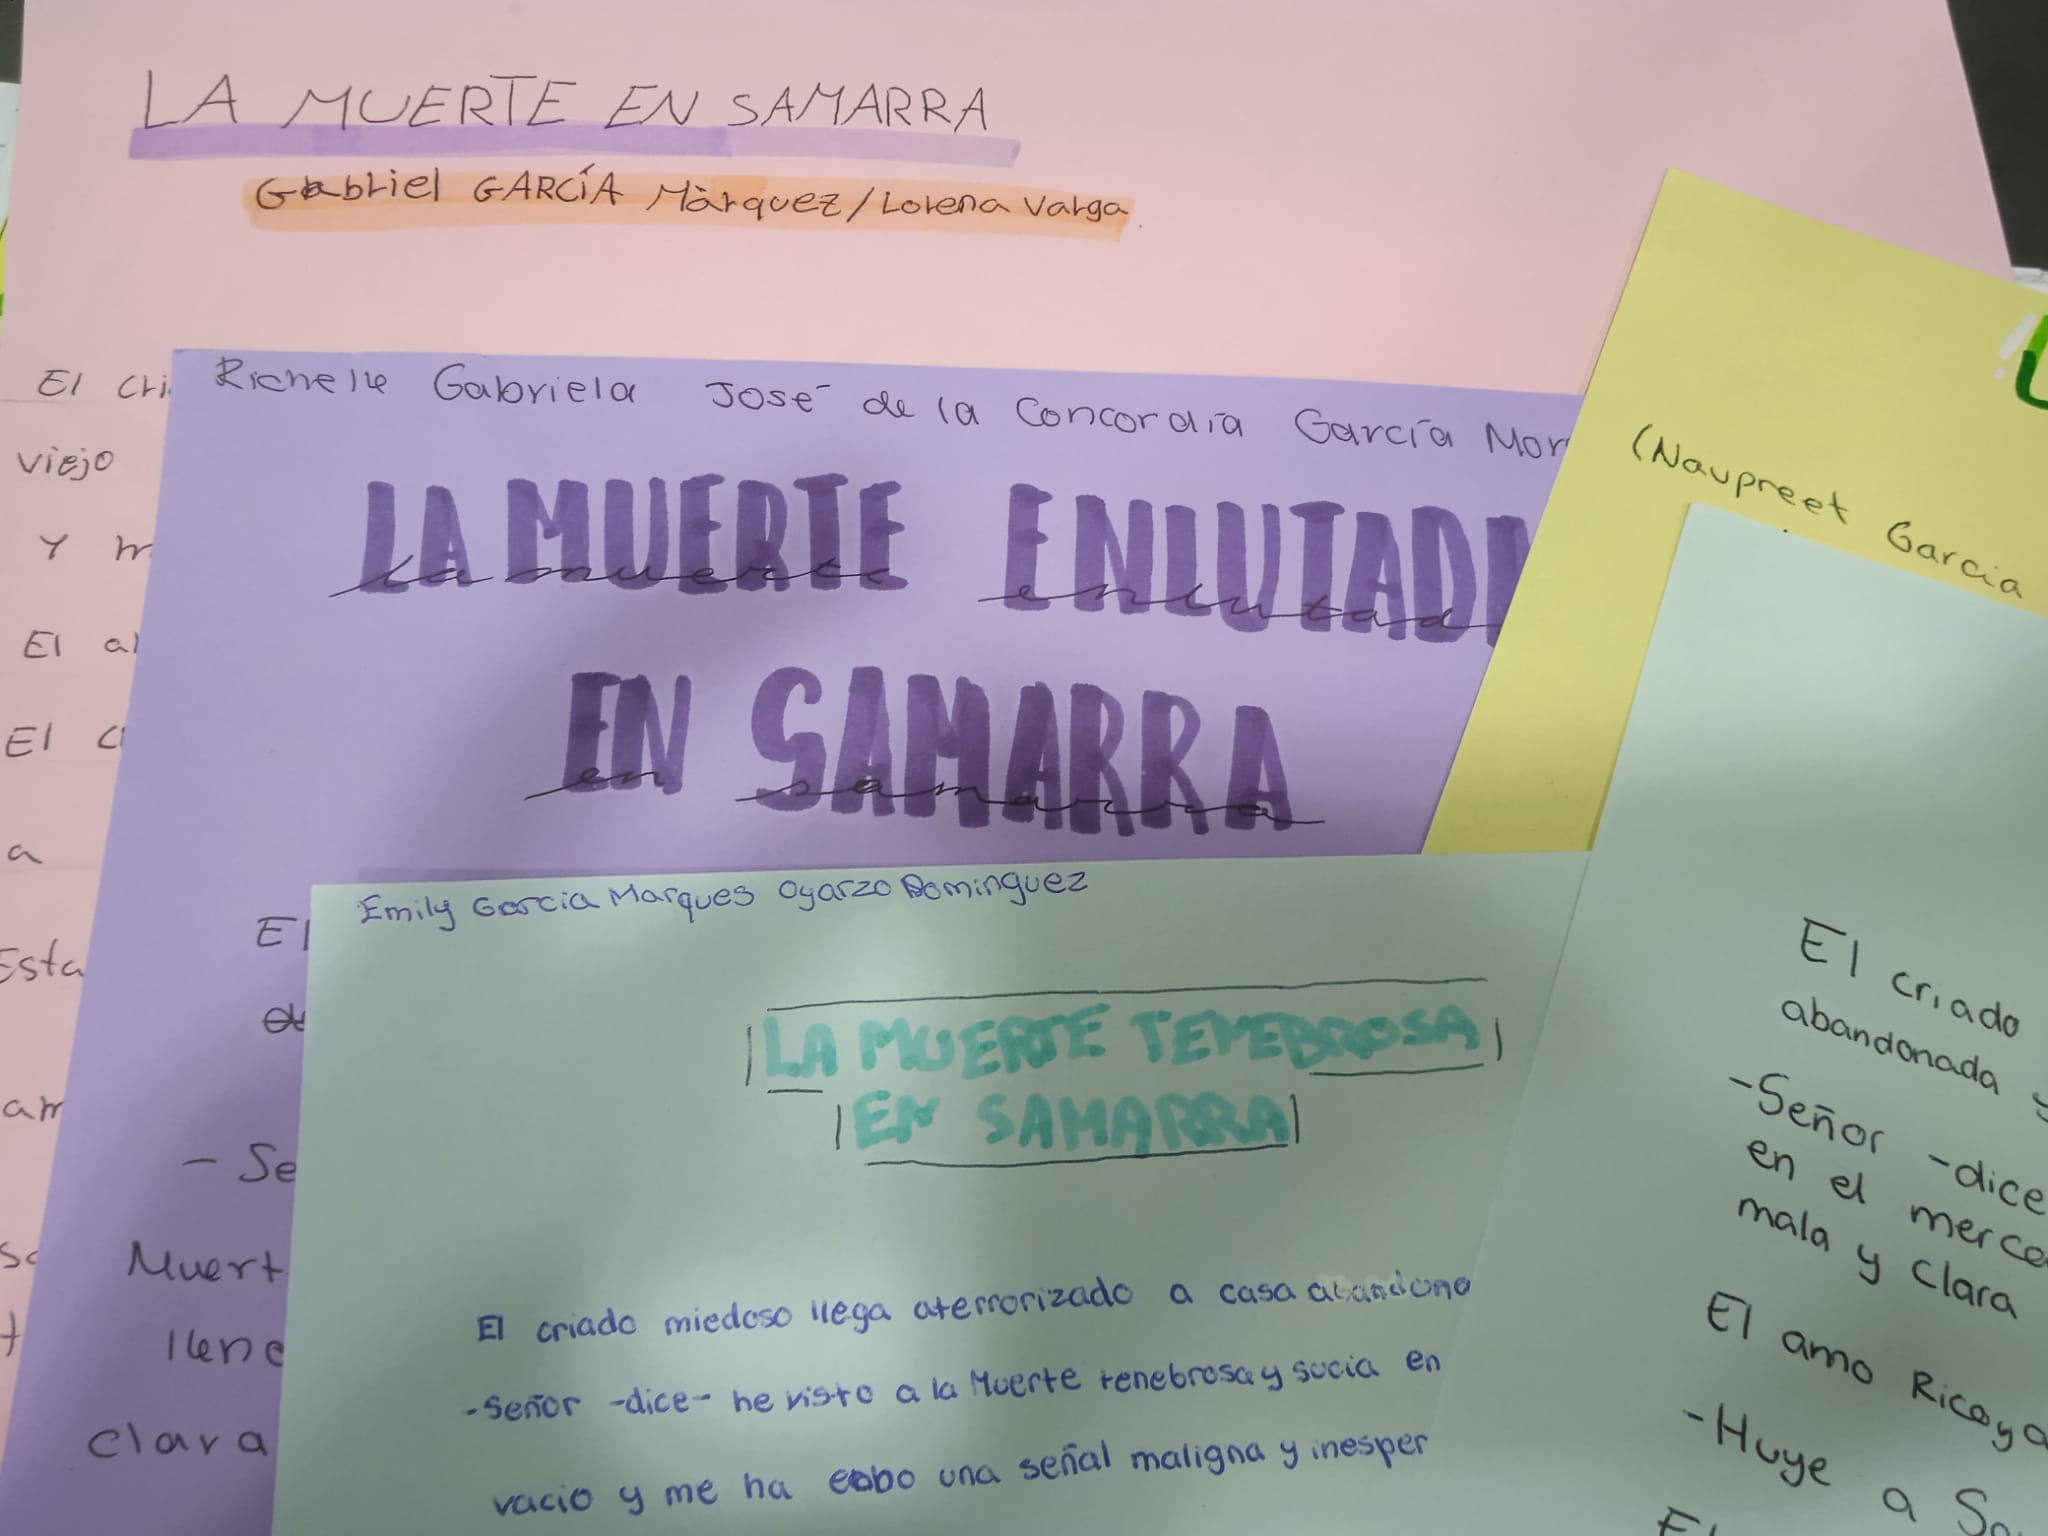 LA MUERTE EN SAMARRA
Gabriel GARCÍA Màrquez/Lorena Varga.
El cri
viejo
Y
El
El
a
Esta
Richelle Gabriela José de la Concordia García Mor
LA MUERTE ENLUTAD
la muerte enlutad
EN SAMARRA
en samarra
El
- Se
Muert
llene
clara
(Naupreet Garcia
Emily Garcia Marques Oyarzo Dominguez
LA MUERTE TENEBROSA
EN SAMARRA
El criado miedoso llega aterrorizado a casa abandona
-Señor -dice- he visto a la Muerte tenebrosa y sucia en
vacio y me ha una señal maligna y inesper
El criado
abandonada y
-Señor -dice
en el merca
mala y clara
El amo Rico y a
-Huye a Sa
El